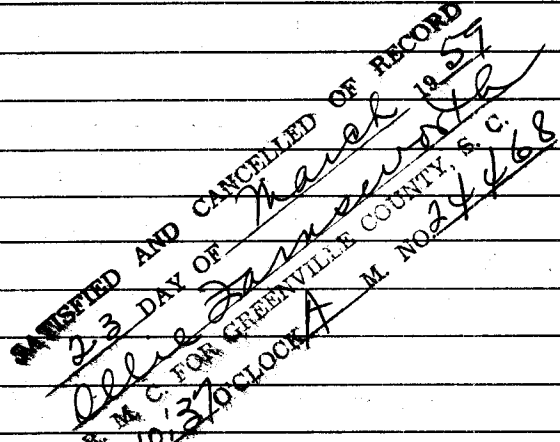 SATISFIED AND CANCELLED OF RECORD
23 DAY OF March 1957
Ollie Farnsworth
R. M. C. FOR GREENVILLE COUNTY, S. C.
10:37 O'CLOCK A M. NO. 24468